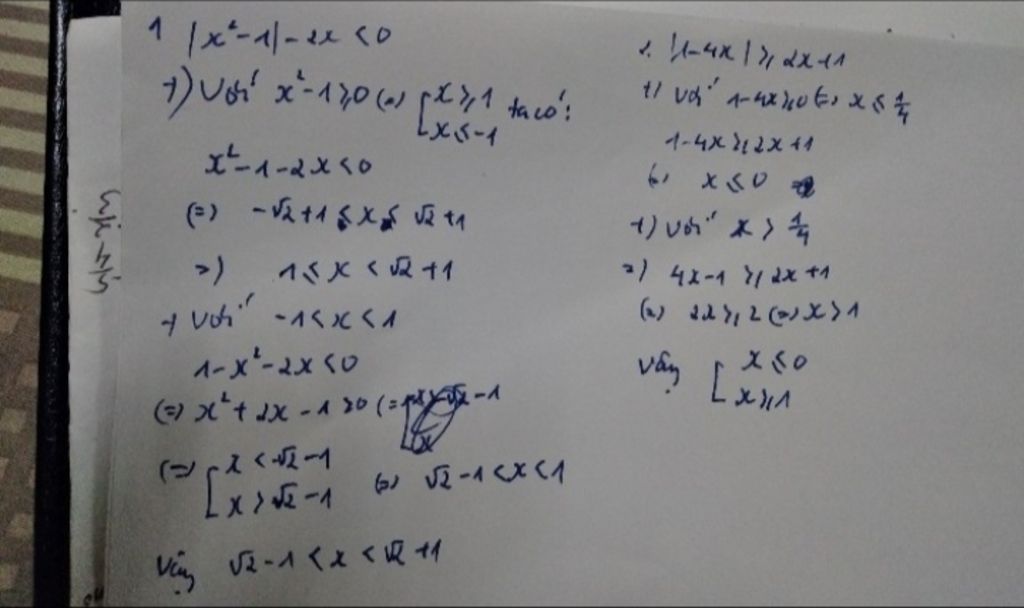 1 |x² - 1| - 2x < 0
+) Với x² - 1 ≥ 0 (=) [ x ≥ 1 ta có:
x ≤ -1
x² - 1 - 2x < 0
(=) -√2 + 1 < x < √2 + 1
=) 1 ≤ x < √2 + 1
+ Với -1 < x < 1
1 - x² - 2x < 0
(=) x² + 2x - 1 > 0 (=)
(=) [ x < -√2 - 1
x > √2 - 1 (=) √2 - 1 < x < 1
Vậy √2 - 1 < x < √2 + 1
2. |1 - 4x| ≥ 2x + 1
+) Với 1 - 4x ≥ 0 (=) x ≤ 1/4
1 - 4x ≥ 2x + 1
(=) x ≤ 0
+) Với x > 1/4
=) 4x - 1 ≥ 2x + 1
(=) 2x ≥ 2 (=) x ≥ 1
Vậy [ x ≤ 0
x ≥ 1